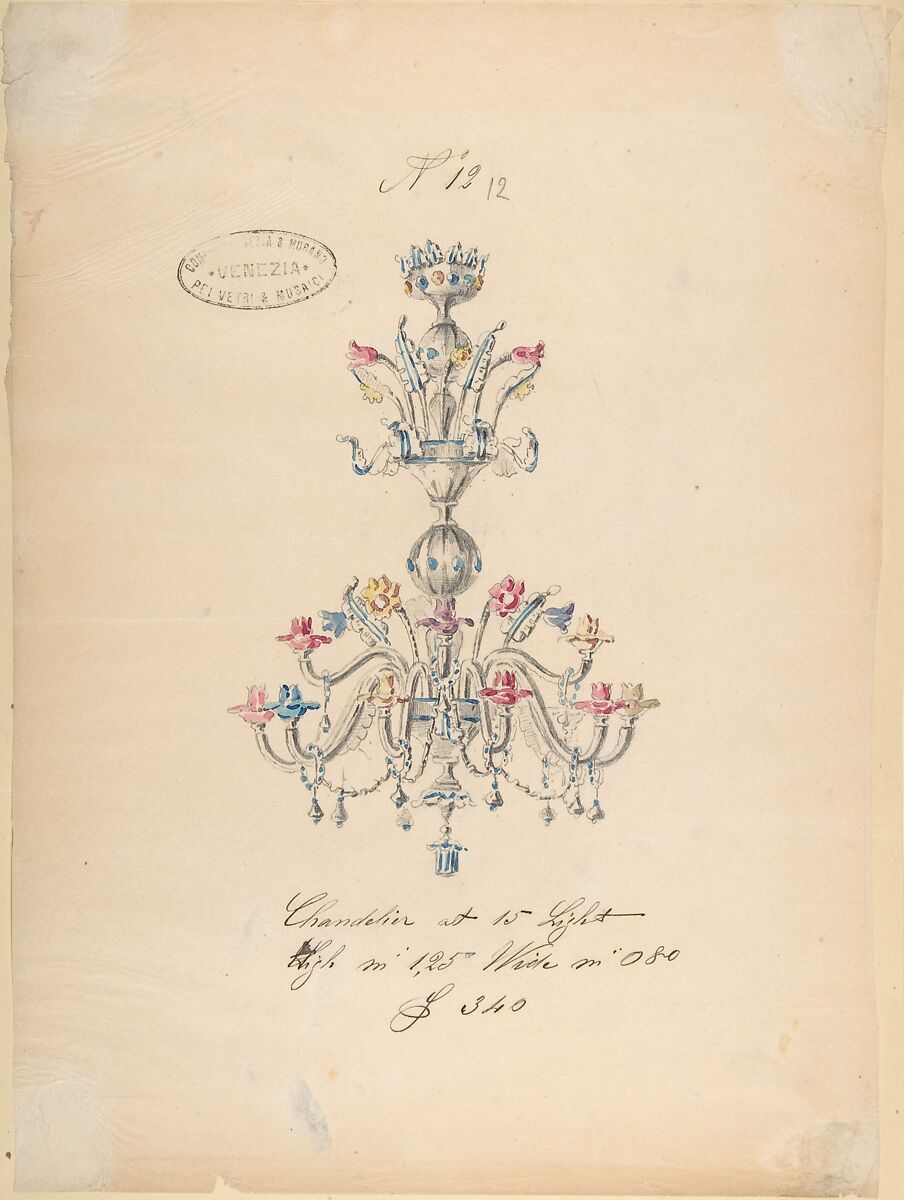 Nº 12 12
COM EZIA & MURANO
VENEZIA
PEI VETRI & MUSAICI
Chandelier at 15 Light
High m 1,25 Wide m 080
340